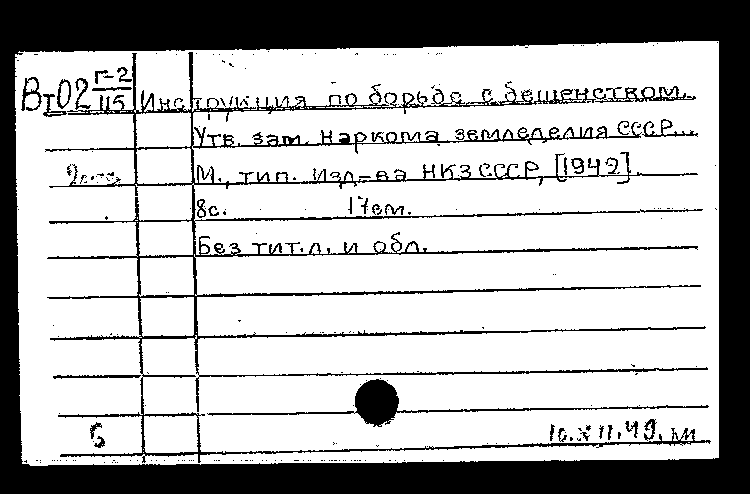 Вт02 Г-2/115 Инструкция по борьбе с бешенством.
Утв. зам. наркома земледелия СССР...
М., тип. изд-ва НКЗ СССР, [1942].
8с. 17см.
Без тит.л. и обл.
Б